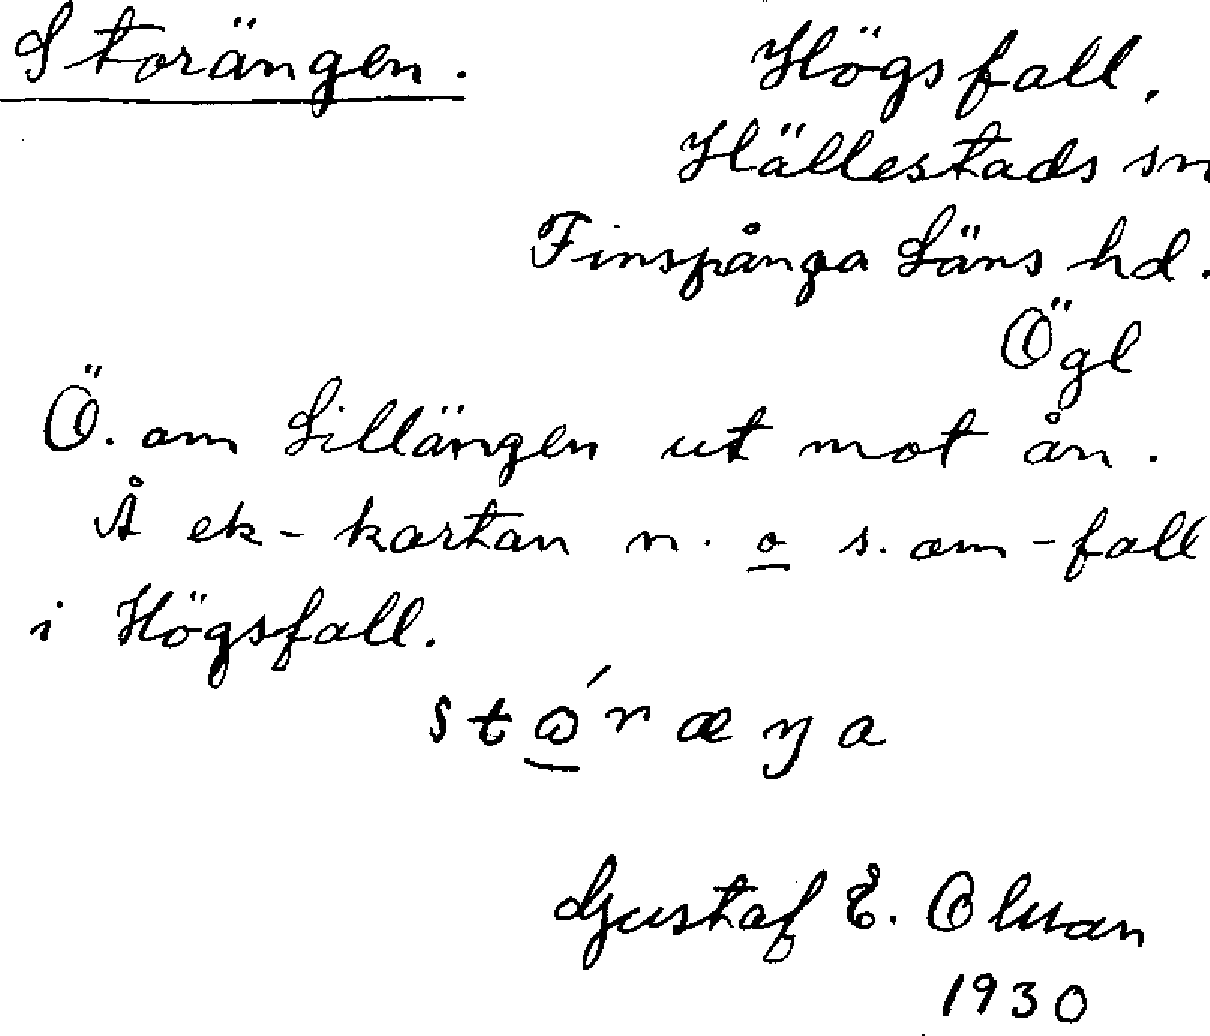 Storängen.
Högsfall,
Hällestads sn
Finspånga Läns hd.
Ögl
Ö. om Lillängen ut mot ån.
Å ek-kartan n. o s. om-fall
i Högsfall.
Gustaf E. Olsson
1930